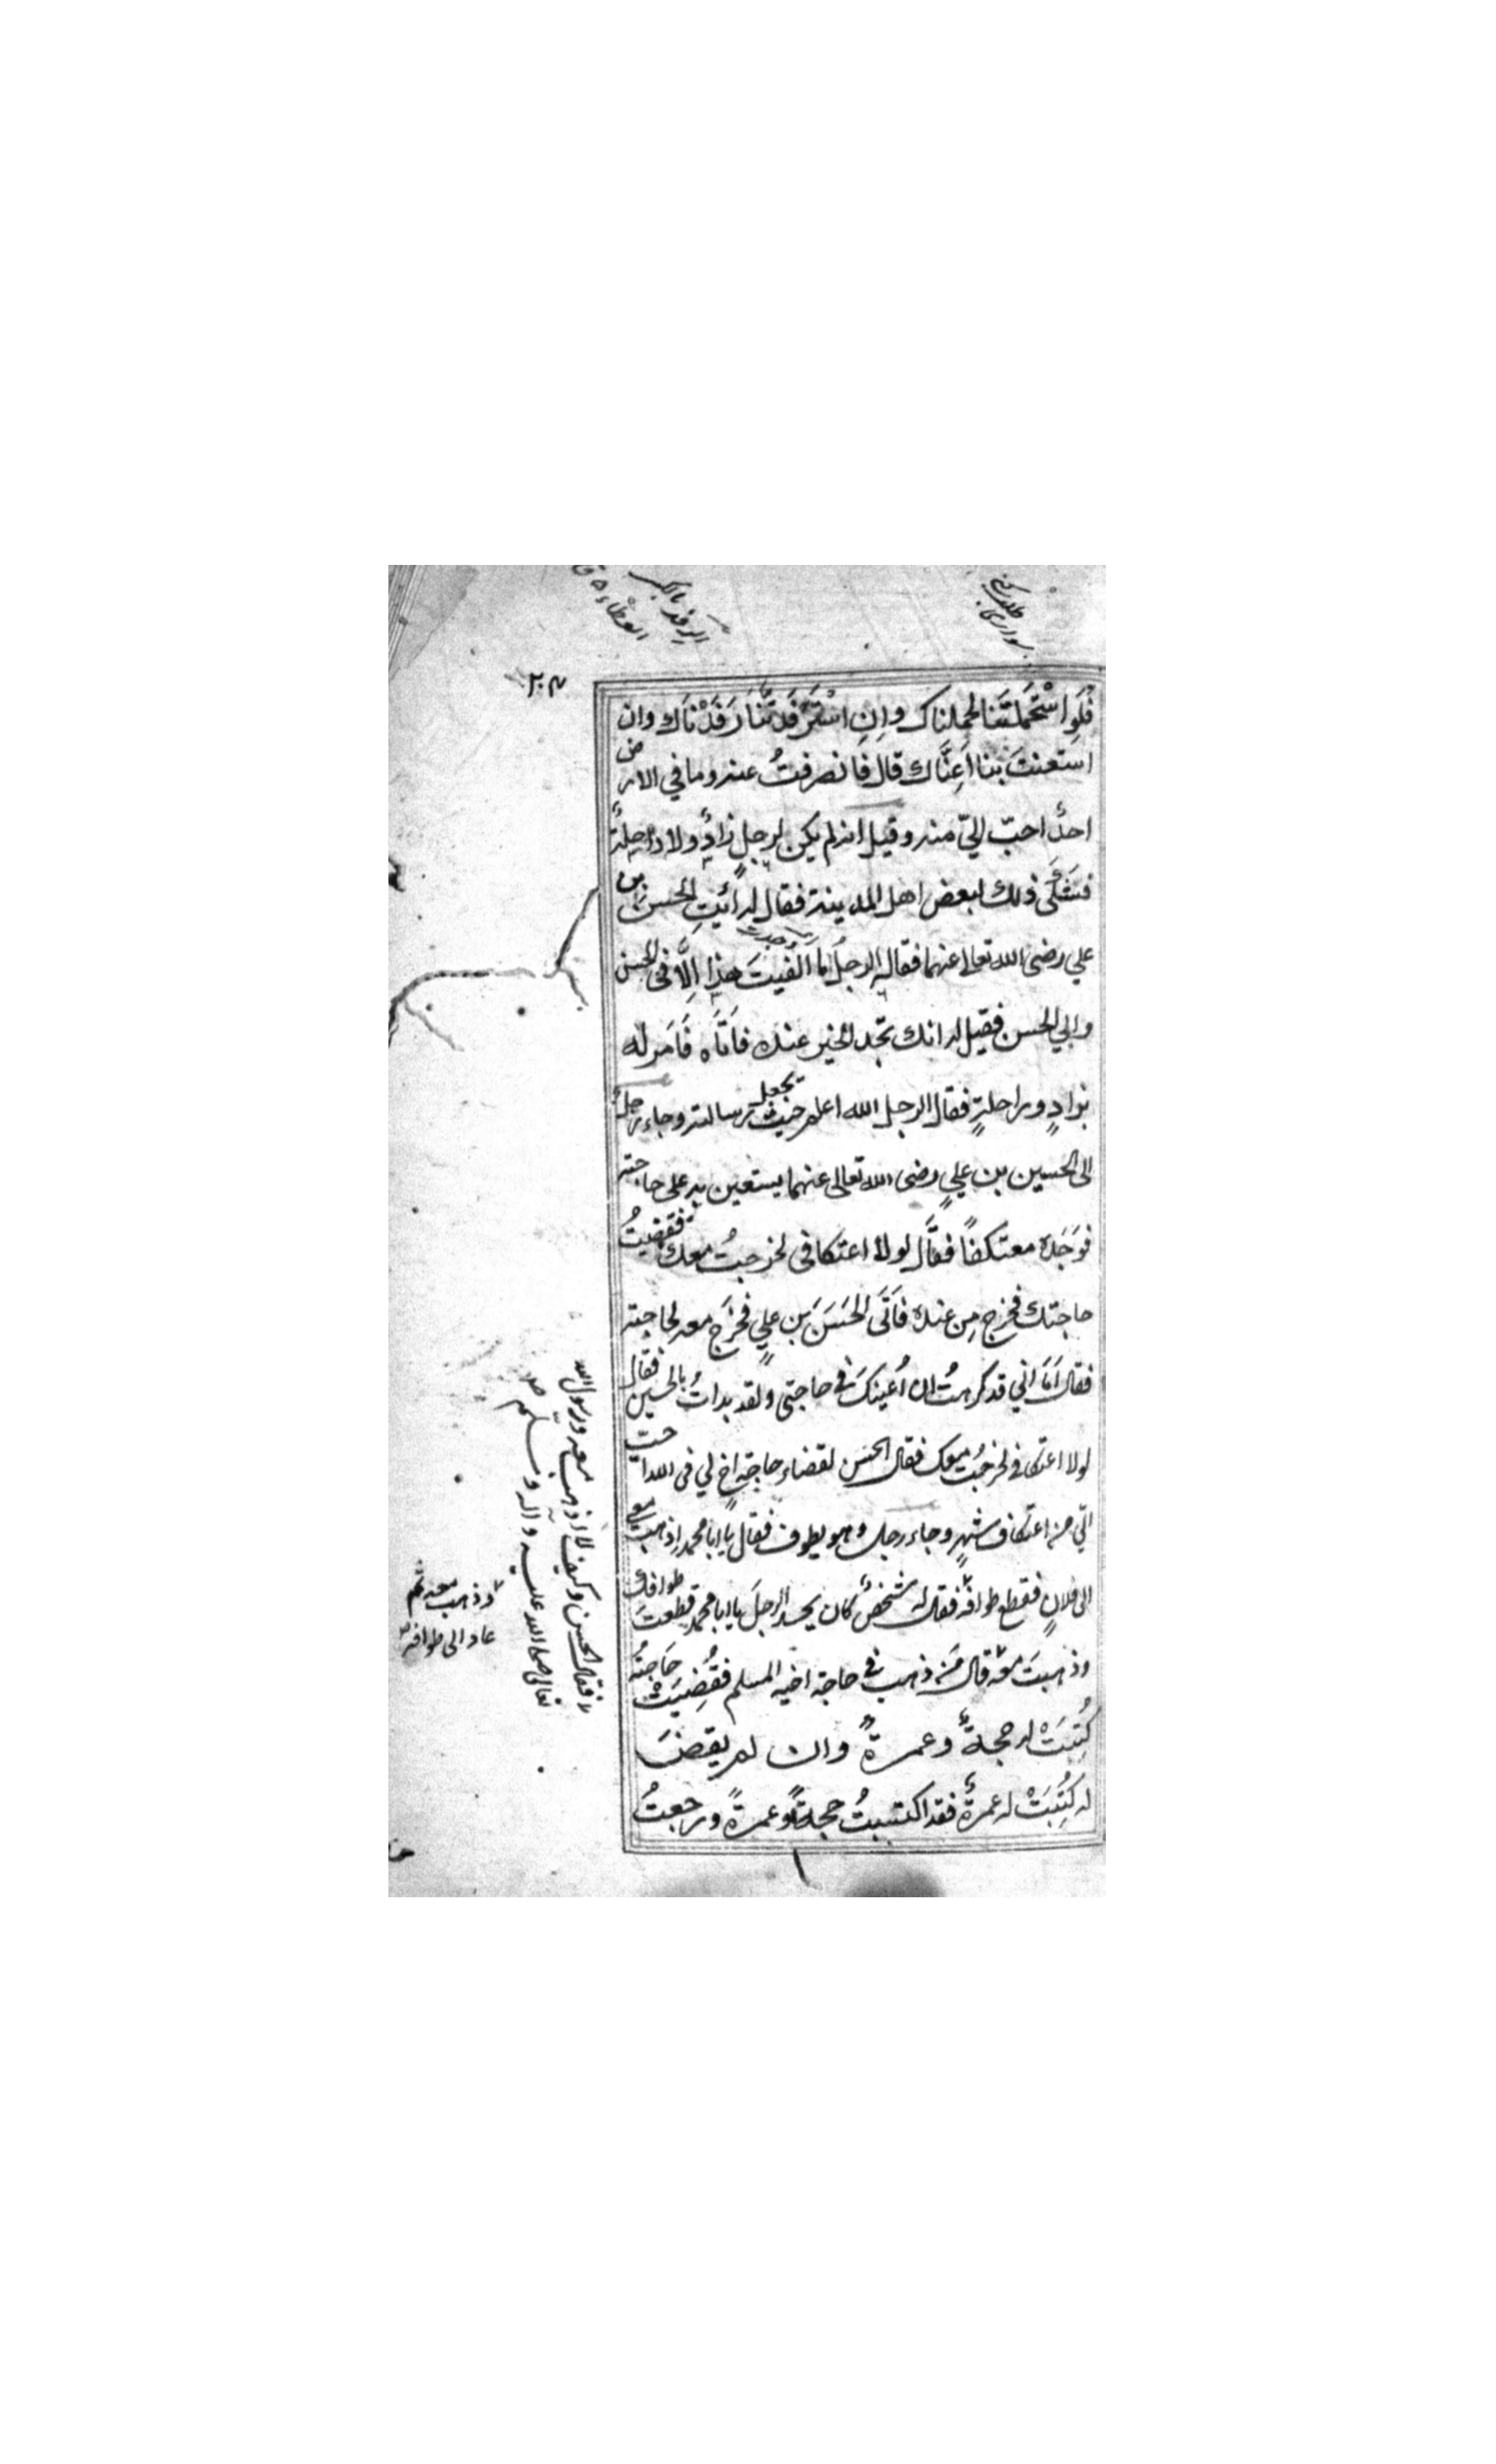 الرفد بالكسر
العطاء ق
۲۰۴
فَلَوِ اسْتَحْمَلْتَنَا لحملناك واِنِ اسْتَرْفَدتَّنَا رَفَدْنَاك وان
استعنتَ بنا اَعِنَّاك قال فانصرفتُ عنه وما في الارض
احدٌ احبّ اليّ منه وقيل انه لم يكن لرجلٍ زادٌ ولا راحلةٌ
فشكى ذلك لبعض اهل المدينة فقال له ائتِ الحسن بن
علي رضى الله تعالى عنهما فقال له الرجلُ ما اَلْفَيتَ هذا اِلَّا في الحسن
وابي الحسن فقيل له انك تجد الخير عنده فَاَتَاه فَاَمَر لَه
بزادٍ وراحلةٍ فقال الرجل الله اعلم حيث يجعل رسالته وجاء رجلٌ
الى الحسين بن عليٍ رضى الله تعالى عنهما يستعين به على حاجته
فوَجَدَه معتكفًا فقَال لولا اعتكافى لخرجتُ معك فقضيتُ
حاجتك فخرج مِن عنده فَاَتَى الحَسَنَ بن عليٍ فخرَج معه لحاجته
فقال اَمَا اني قد كرهتُ ان اُعينكَ فى حاجتى ولقد بداتُ بالحسين فقال
لولا اعتكافى لخرجتُ معك فقال الحسن لقضاء حاجة اخٍ لي فى الله احبّ
اليّ من اعتكاف شهرٍ وجاء رجل وهو يطوف فقال يا ابا محمد اِذهب معي
الى فلانٍ فقطع طوافه فقال له شخصٌ كان يحسد الرجلَ يا ابا محمد قطعتَ طوافك
وذهبتَ معه قال مَن ذهب في حاجة اخيه المسلم فقُضِيَتْ حَاجتُه
كُتِبَتْ له حجةٌ وعمرةٌ وان لم يقضَ
له كُتِبَتْ له عمرةٌ فقد اكتسبتُ حجةً وعمرةً ورجعتُ
فقال الحسن وكيف لا اذهب معه ورسول الله
تعالى صلى الله عليه وآله وسلم
وذهب معه ثم
عاد الى طوافه